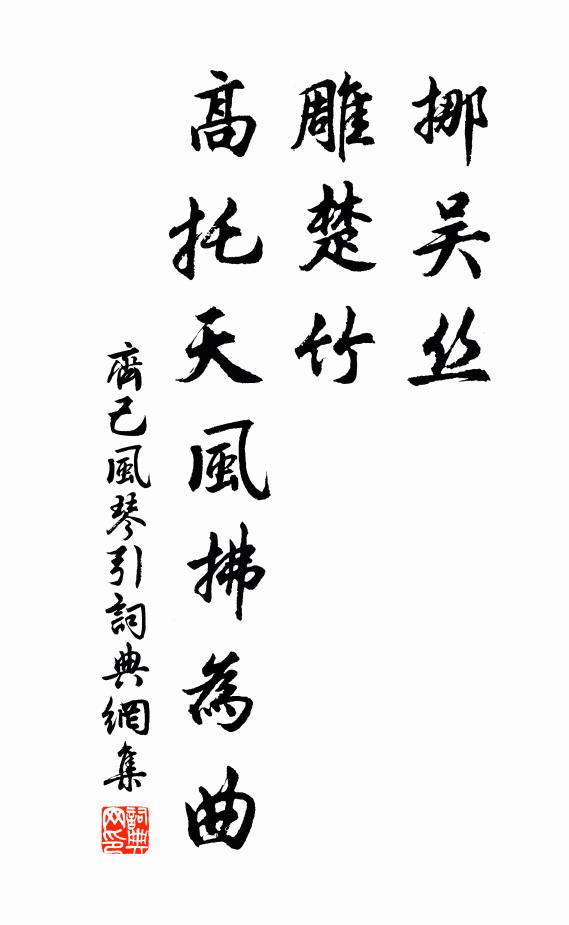 挪吴丝
雕楚竹
高托天風拂為曲
齊己風琴引詞典網集
詞典网印